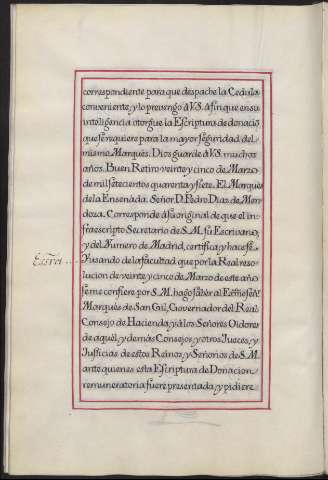 correspondiente para que despache la Cedula
conveniente, y lo prevengo à V.S. à fin que en su
inteligencia otorgue la Escriptura de donacio
que se requiere para la mayor seguridad del
mismo Marques. Dios guarde à V.S. muchos
años. Buen Retiro veinte y cinco de Marzo
de mil setecientos quarenta y siete. El Marques
de la Ensenada. Señor Dn. Pedro Diaz de Men-
doza. Corresponde à su original de que el in-
fraescripto Secretario de S.M. su Escrivano,
y del Numero de Madrid, certifica, y hace fe.
Y usando de la facultad que por la Real reso-
lucion de veinte y cinco de Marzo de este año
se me confiere por S.M. hago saber al Exmo. señr.
Marques de San Gil, Governador del Real
Consejo de Hacienda, y à los Señores Oidores
de aquèl, y demàs Consejos, y otros Jueces, y
Justicias de estos Reinos, y Señorios de S.M.
ante quienes esta Escriptura de Donacion
remuneratoria fuere presentada, y pidiere